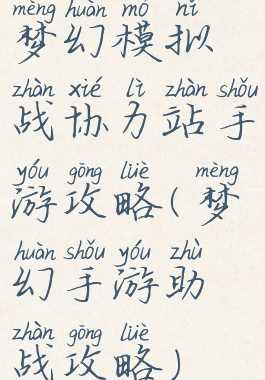 mèng huàn mó nǐ
梦幻模拟
zhàn xié lì zhàn shǒu
战协力站手
yóu gōng lüè mèng
游攻略(梦
huàn shǒu yóu zhù
幻手游助
zhàn gōng lüè
战攻略)